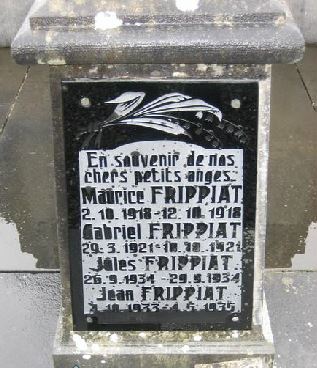 En souvenir de nos
chers petits anges.
Maurice FRIPPIAT
2.10.1918-12.10.1918
Gabriel FRIPPIAT
29.3.1921-
Jules FRIPPIAT
26.9.1934 - 29.9.1934
Jean FRIPPIAT